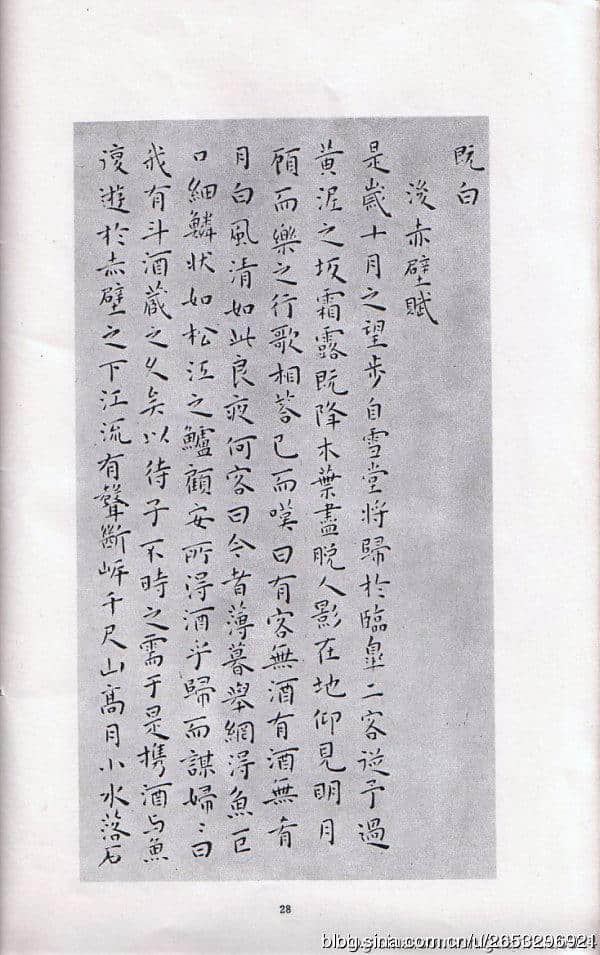 既白
後赤壁賦
是歲十月之望步自雪堂將歸於臨皐二客從予過
黃泥之坂霜露既降木葉盡脫人影在地仰見明月
顧而樂之行歌相荅已而嘆曰有客無酒有酒無肴
月白風清如此良夜何客曰今者薄暮舉網得魚巨
口細鱗狀如松江之鱸顧安所得酒乎歸而謀婦〻曰
我有斗酒藏之久矣以待子不時之需于是携酒与魚
復遊於赤壁之下江流有聲斷岸千尺山高月小水落石
28